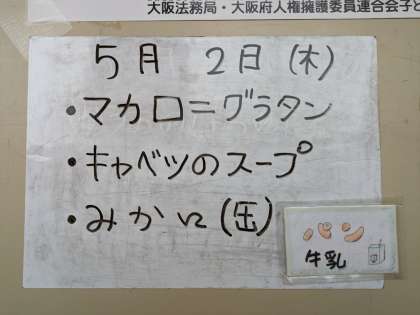 大阪法務局・大阪府人権擁護委員連合会子ど
5月 2日(木)
・マカロニグラタン
・キャベツのスープ
・みかん(缶)
パン
牛乳